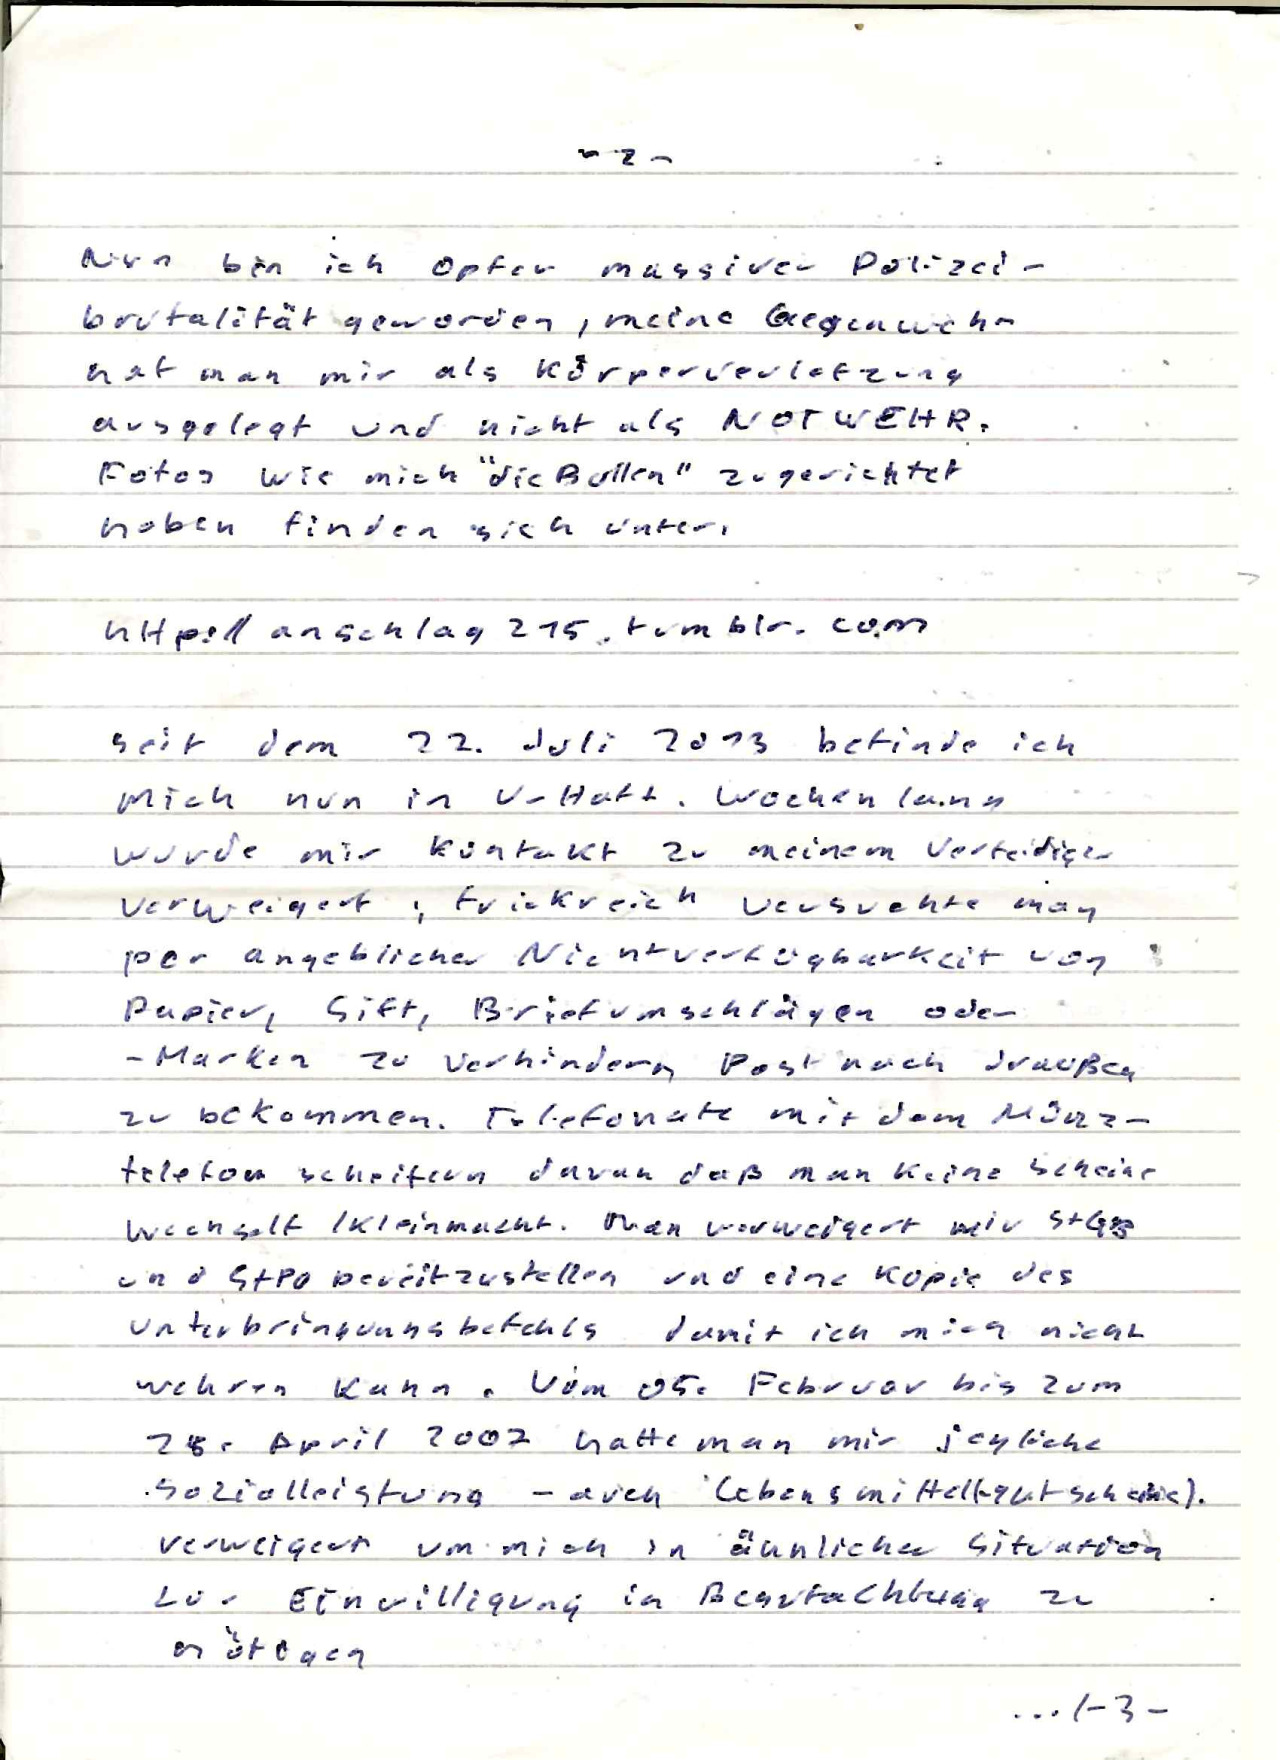 - 2 -
Nun bin ich Opfer massiver Polizei-
brutalität geworden, meine Gegenwehr
hat man mir als Körperverletzung
ausgelegt und nicht als NOTWEHR.
Fotos wie mich "die Bullen" zugerichtet
haben finden sich unter:
anschlag215.tumblr.com
seit dem 22. Juli 2013 befinde ich
Mich nun in U-Haft. Wochenlang
wurde mir Kontakt zu meinem Verteidiger
verweigert, trickreich versuchte man
per angeblicher Nichtverfügbarkeit von
Papier, Sift, Briefumschlägen oder
-Marken zu verhindern Post nach draußen
zu bekommen. Telefonate mit dem Münz-
telefon scheitern daran daß man keine Scheine
wechselt /kleinmacht. Man verweigert mir StGB
und StPO bereitzustellen und eine Kopie des
Unterbringungsbefehls damit ich mich nicht
wehren kann. Vom 05. Februar bis zum
April 2007 hatte man mir jegliche
Sozialleistung - auch Lebensmittel(-gutscheine).
verweigert um mich in ähnlicher Situation
zur Einwilligung in Begutachtung zu
nötigen
.../-3-